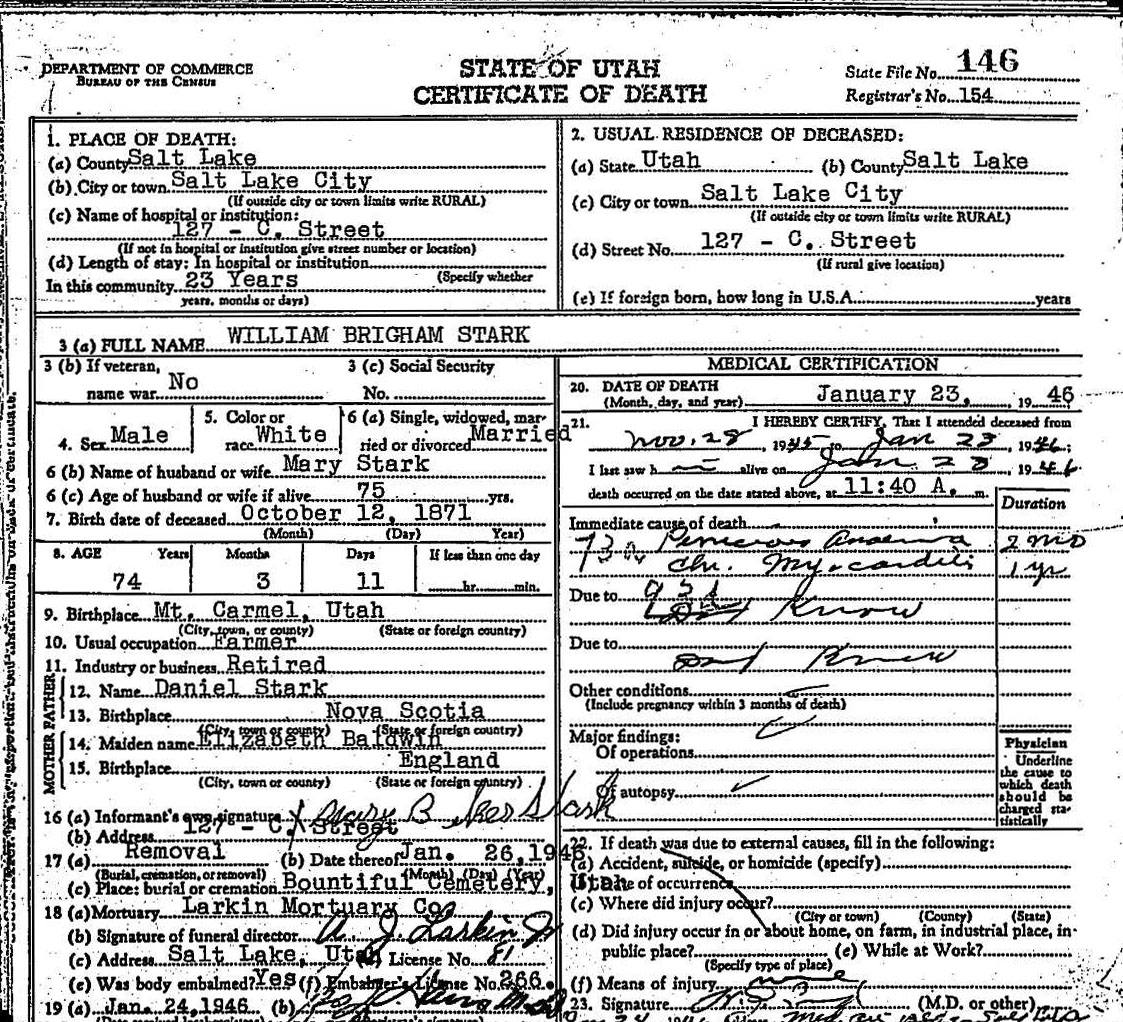 DEPARTMENT OF COMMERCE
BUREAU OF THE CENSUS
STATE OF UTAH
CERTIFICATE OF DEATH
State File No. 146
Registrar's No. 154
1. PLACE OF DEATH:
(a) County Salt Lake
(b) City or town Salt Lake City
(If outside city or town limits write RURAL)
(c) Name of hospital or institution:
127 - C. Street
(If not in hospital or institution give street number or location)
(d) Length of stay: In hospital or institution
(Specify whether
In this community 23 Years
years, months or days)
2. USUAL RESIDENCE OF DECEASED:
(a) State Utah (b) County Salt Lake
(c) City or town Salt Lake City
(If outside city or town limits write RURAL)
(d) Street No. 127 - C. Street
(If rural give location)
(e) If foreign born, how long in U.S.A. years
3 (a) FULL NAME WILLIAM BRIGHAM STARK
3 (b) If veteran,
name war No
3 (c) Social Security
No.
4. Sex Male
5. Color or
race White
6 (a) Single, widowed, mar-
ried or divorced Married
6 (b) Name of husband or wife Mary Stark
6 (c) Age of husband or wife if alive 75 yrs.
7. Birth date of deceased October 12, 1871
(Month) (Day) Year)
8. AGE Years Months Days If less than one day
74 3 11 hr. min.
9. Birthplace Mt. Carmel, Utah
(City, town, or county) (State or foreign country)
10. Usual occupation Farmer
11. Industry or business Retired
FATHER
12. Name Daniel Stark
13. Birthplace Nova Scotia
(City, town or county) (State or foreign country)
MOTHER
14. Maiden name Elizabeth Baldwin
15. Birthplace England
(City, town or county) (State or foreign country)
16 (a) Informant's own signature Mary B Stark
(b) Address 127 - C. Street
17 (a) Removal (b) Date thereof Jan. 26, 1946
(Burial, cremation, or removal) (Month) (Day) (Year)
(c) Place: burial or cremation Bountiful Cemetery, Utah
18 (a) Mortuary Larkin Mortuary Co
(b) Signature of funeral director A. J. Larkin Jr
(c) Address Salt Lake, Utah (d) License No. 81
(e) Was body embalmed? Yes (f) Embalmer's License No. 266.
19 (a) Jan. 24, 1946 (b)
MEDICAL CERTIFICATION
20. DATE OF DEATH
(Month, day, and year) January 23, 19 46
21. I HEREBY CERTIFY, That I attended deceased from
Nov. 28, 1945 to Jan 23 1946;
I last saw h alive on Jan 23, 1946
death occurred on the date stated above, at 11:40 A. m.
Duration
Immediate cause of death
73a Pernicious Anaemia 2 mo
Chr. Myocarditis 1 yr
Due to 93d
Dont Know
Due to
Dont Know
Other conditions
(Include pregnancy within 3 months of death)
Major findings:
Of operations
Of autopsy
Physician
Underline
the cause to
which death
should be
charged sta-
tistically
22. If death was due to external causes, fill in the following:
(a) Accident, suicide, or homicide (specify)
(b) Date of occurrence
(c) Where did injury occur?
(City or town) (County) (State)
(d) Did injury occur in or about home, on farm, in industrial place, in
public place? (e) While at Work?
(Specify type of place)
(f) Means of injury
23. Signature (M.D. or other)